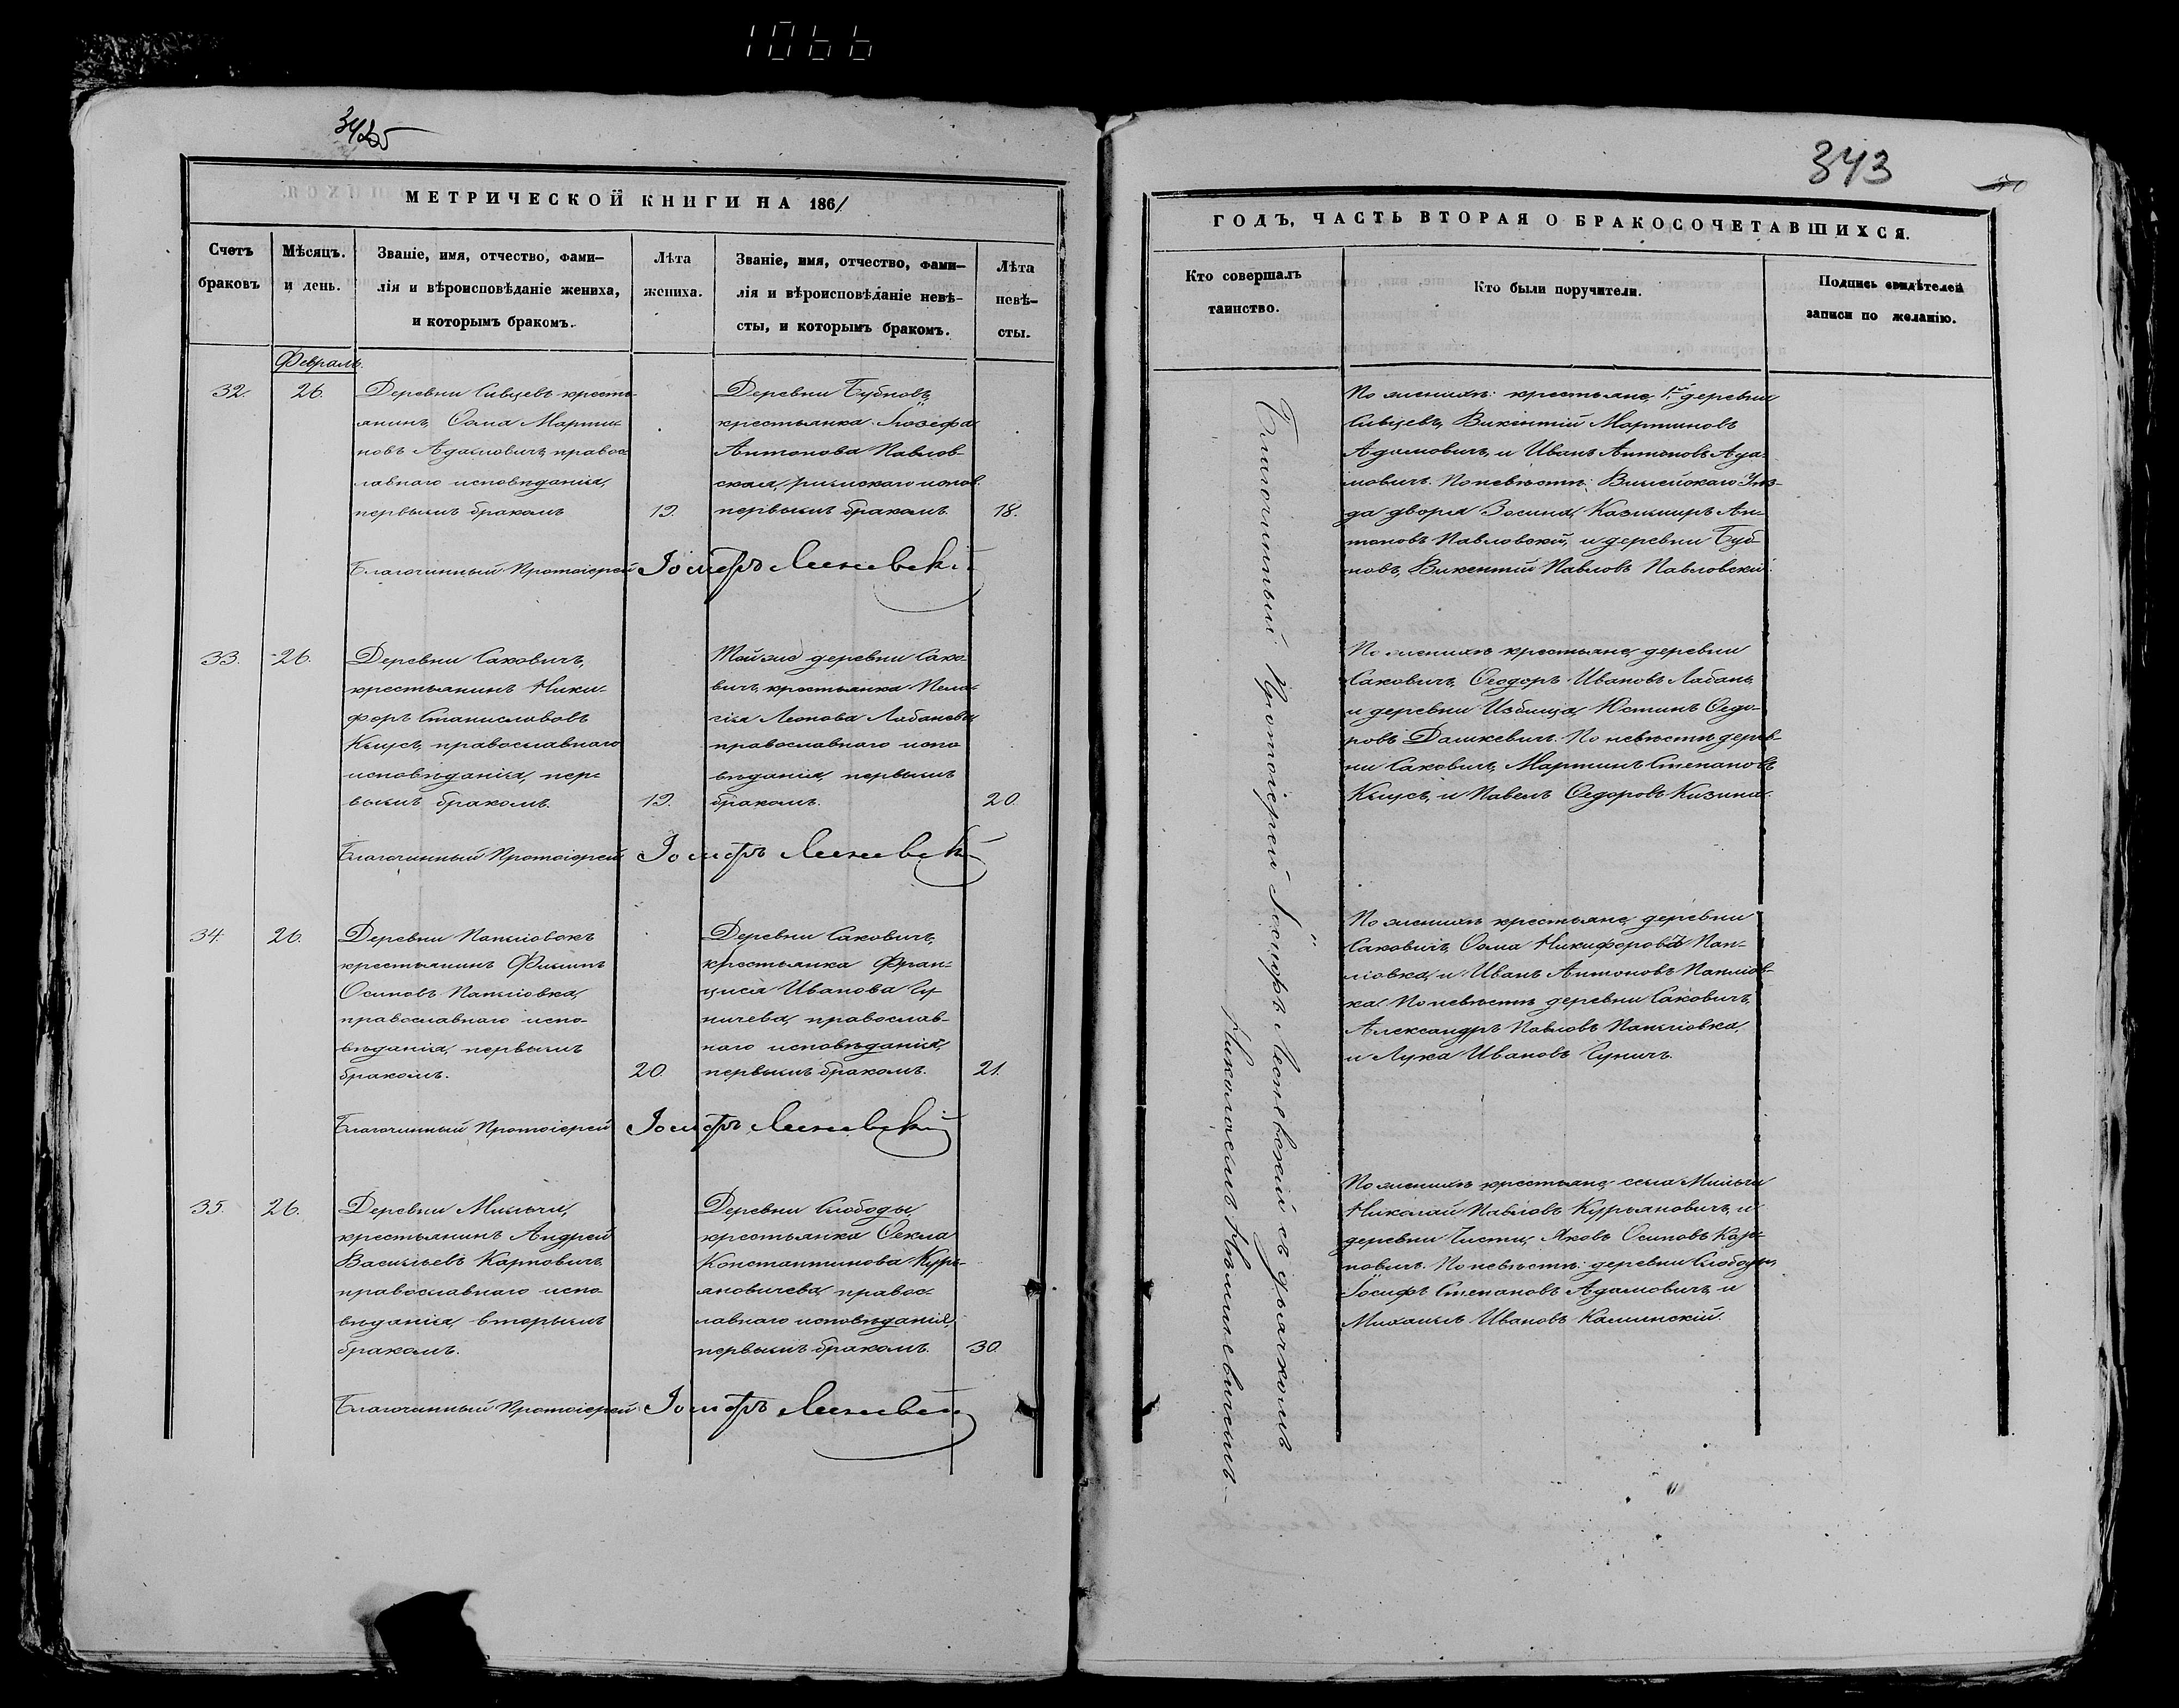 1066
343
МЕТРИЧЕСКОЙ КНИГИ НА 1861
Счетъ браковъ
Мѣсяцъ. и день.
Званіе, имя, отчество, фами-
лія и вѣроисповѣданіе жениха,
и которымъ бракомъ.
Лѣта жениха.
Званіе, имя, отчество, фами-
лія и вѣроисповѣданіе невѣ-
сты, и которымъ бракомъ.
Лѣта невѣ-
сты.
Февраль.
32.
26.
Деревни Сивцевъ кресть-
янинъ, Ѳома Марти-
новъ Адамовичъ, правос-
лавнаго исповѣданія,
первымъ бракомъ
19.
Деревни Бубновъ,
крестьянка Іозефа
Антонова Павлов-
ская, римскаго испов.
первымъ бракомъ.
18.
Благочинный Протоіерей Іосифъ
33.
26.
Деревни Саковичъ,
крестьянинъ Ники-
форъ Станиславовъ
православнаго
исповѣданія, пер-
вымъ бракомъ.
19.
Той же деревни Сако-
вичъ, крестьянка Пела-
гія Леонова Лабанова
православнаго испо-
вѣданія, первымъ
бракомъ.
20.
Благочинный Протоіерей Іосифъ
34.
26.
Деревни
крестьянинъ Филипъ
Осиповъ
православнаго испо-
вѣданія, первымъ
бракомъ.
20.
Деревни Саковичъ,
крестьянка Фран-
циса Иванова Гу-
ничева, православ-
наго исповѣданія,
первымъ бракомъ.
21.
Благочинный Протоіерей Іосифъ
35.
26.
Деревни Мильчи,
крестьянинъ Андрей
Васильевъ Карповичъ
православнаго испо-
вѣданія, вторымъ
бракомъ.
Деревни Слободы
крестьянка Ѳекла
Константинова Курь-
яновичева, правос-
лавнаго исповѣданія,
первымъ бракомъ.
30.
Благочинный Протоіерей Іосифъ
ГОДЪ, ЧАСТЬ ВТОРАЯ О БРАКОСОЧЕТАВШИХСЯ.
Кто совершалъ
таинство.
Кто были поручители.
Подпись свидѣтелей
записи по желанію.
Благочинный Протоіерей Іосифъ съ дьячкомъ
Николаемъ
По женихѣ: крестьяне, деревни
Сивцевъ, Викентій Мартиновъ
Адамовичъ, и Иванъ Антоновъ Ада-
мовичъ. По невѣстѣ: Вилейскаго Уѣз-
да двора Казимиръ Ан-
тоновъ Павловскій, и деревни Буб-
новъ, Викентій Павловъ Павловскій.
По женихѣ крестьяне, деревни
Саковичъ, Ѳеодоръ Ивановъ Лабанъ,
и деревни Избища, Юстинъ Ѳедо-
ровъ Дашкевичъ. По невѣстѣ дерев-
ни Саковичъ, Мартинъ Степановъ
и Павелъ Ѳедоровъ
По женихѣ крестьяне, деревни
Саковичъ, Ѳома Никифоровъ
и Иванъ Антоновъ
По невѣстѣ деревни Саковичъ,
Александръ Павловъ
и Лука Ивановъ Гуничъ.
По женихѣ крестьяне, села Мильчи
Николай Павловъ Курьяновичъ, и
деревни Яковъ Осиповъ Кар-
повичъ. По невѣстѣ: деревни Слободы,
Іосифъ Степановъ Адамовичъ, и
Михаилъ Ивановъ Каминскій.